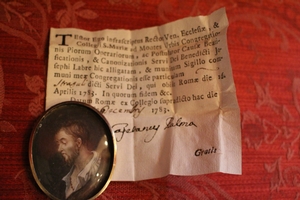 Testor Ego infrascriptus Rector Ven. Ecclesiæ, &
Collegii S. Mariæ ad Montes Pijsq; Congregationis
Piorum Operariorum, ac Postulator Causæ Beati-
ficationis, & Canonizationis Servi Dei Benedicti Jo-
sephi Labre hic alligatam, & meo Sigillo com-
muni meæ Congregationis esse particulam
dicti Servi Dei, qui obiit Romæ die 16
Aprilis 1783. In quorum fidem &c.
Datum Romæ ex Collegio supradicto hac die
1783.
Palma
Gratis